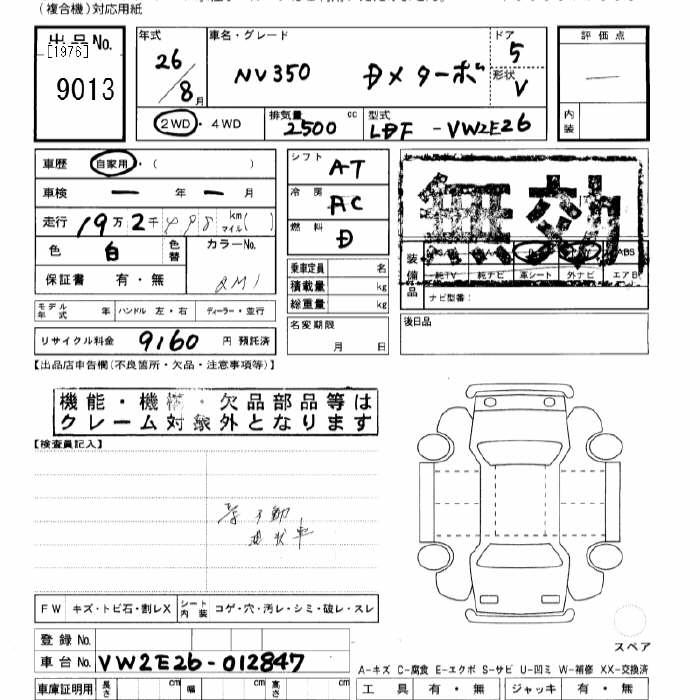 (複合機)対応用紙
出品No.
[1976]
9013
年式
26/8月
車名・グレード
NV350 DXターボ
ドア
5
形状
V
評価点
内装
2WD・4WD
排気量
2500cc
型式
LDF-VW2E26
車歴 自家用・( )
車検 ー年ー月
走行 19万2千498 km マイル( )
色 白 色替 カラーNo.
保証書 有・無 QM1
モデル年式 年 ハンドル 左・右 ディーラー・並行
リサイクル料金 9160 円 預託済
シフト AT
冷房 AC
燃料 D
乗車定員 名
積載量 kg
総重量 kg
名変期限
月 日
無効
装備品
ABS
純TV 純ナビ 革シート 外ナビ エアB
ナビ型番:
後日品
【出品店申告欄(不良箇所・欠品・注意事項等)】
機能・機構・欠品部品等は
クレーム対象外となります
【検査員記入】
現状車
FW キズ・トビ石・割レX シート内装 コゲ・穴・汚レ・シミ・破レ・スレ
登録No.
車台No. VW2E26-012847
車庫証明用 長さ cm 幅 cm 高さ cm
スペア
A-キズ C-腐食 E-エクボ S-サビ U-凹ミ W-補修 XX-交換済
工具 有・無 ジャッキ 有・無